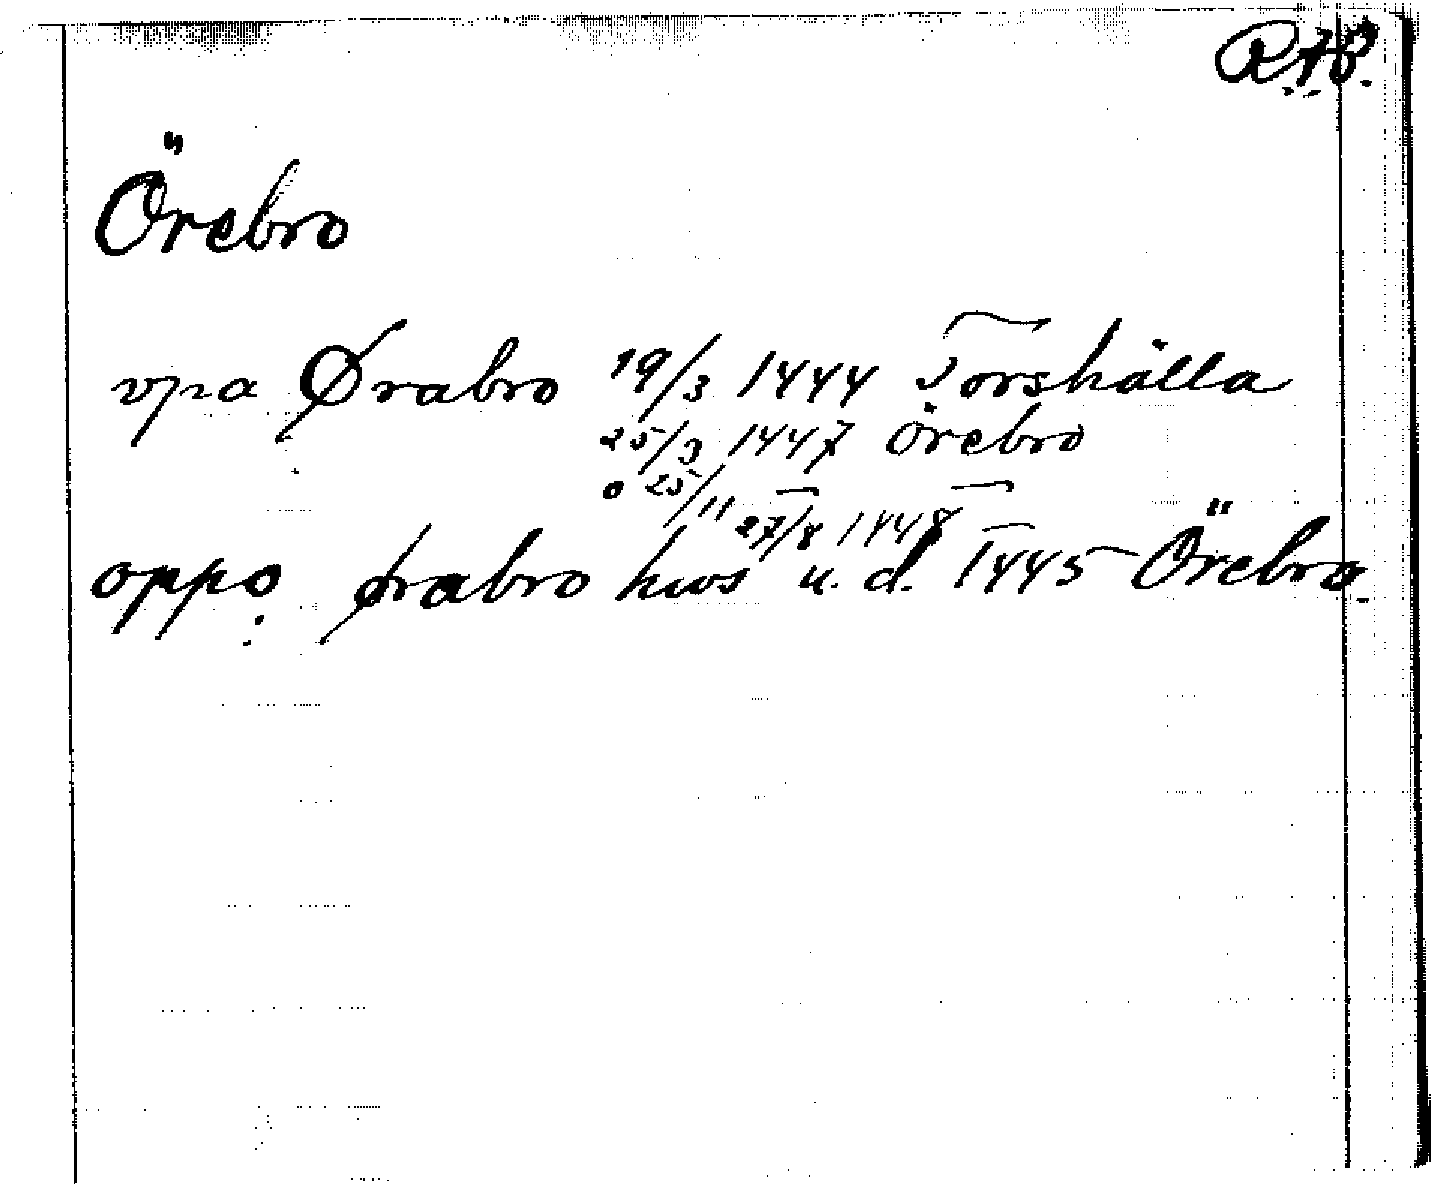 R.A.P.
Örebro
vpa Ørabro 19/3 1444 Torshälla
25/3 1447 Örebro
o 25/11 27/8 1448
oppo ørabro hws u. d. 1445 Örebro.